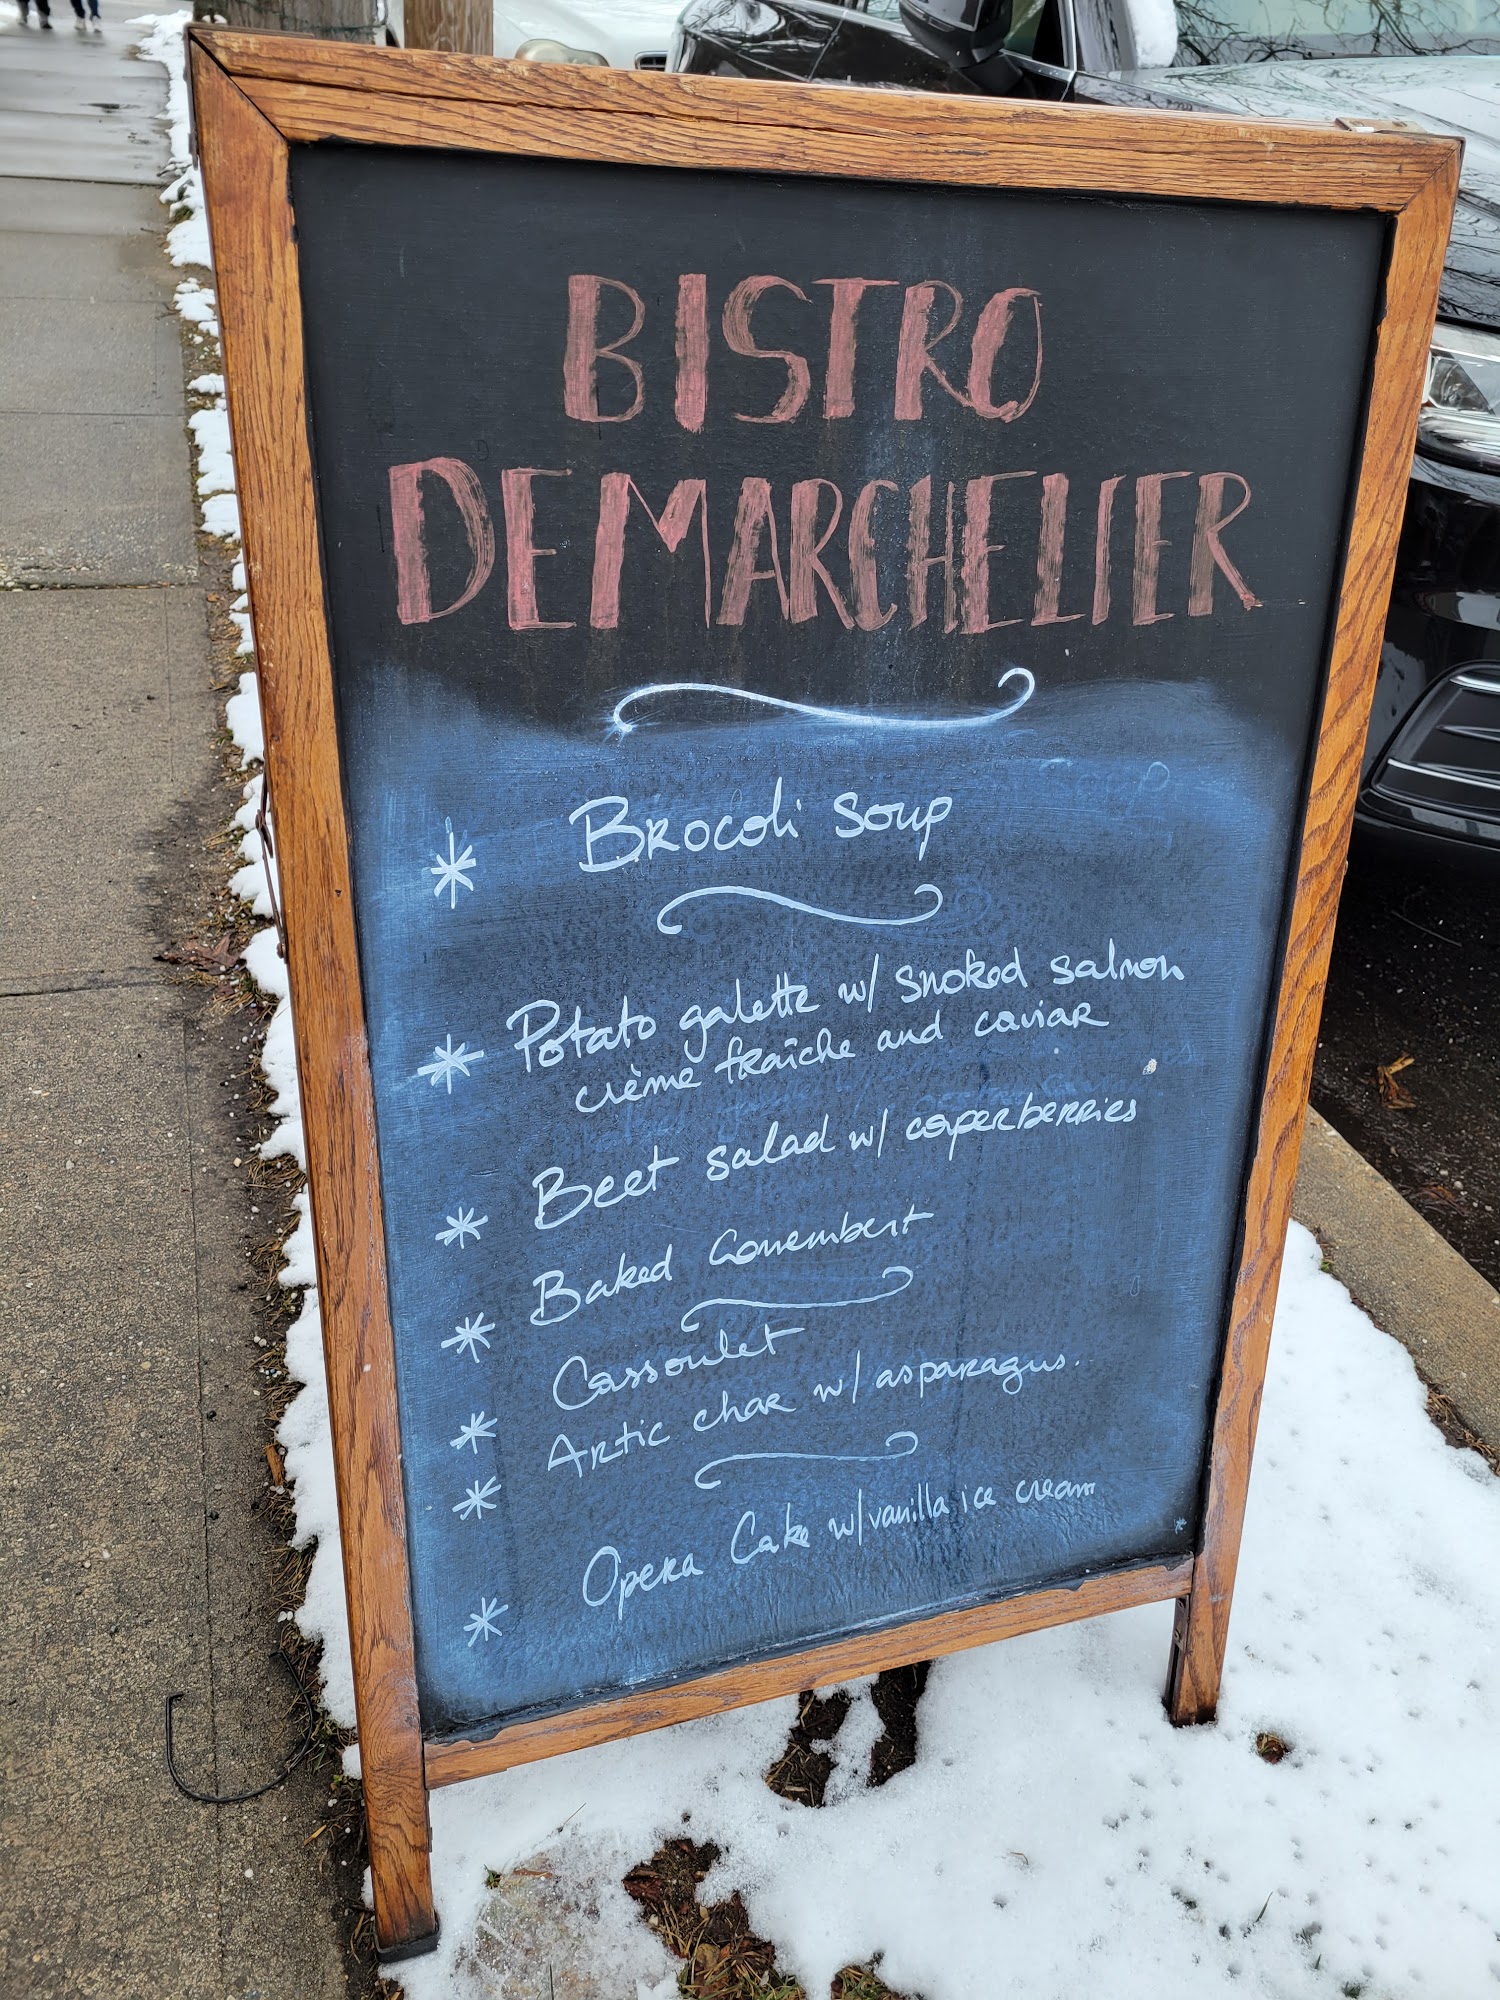 BISTRO
DEMARCHELIER
Brocoli soup
Potato galette w/ smoked salmon
crème fraîche and caviar
Beet salad w/ caperberries
Baked Camembert
Cassoulet
Artic char w/ asparagus.
Opera Cake w/ vanilla ice cream